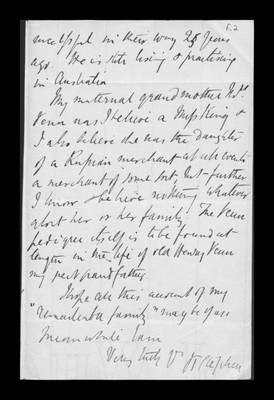 52
successful in their way 25 years
ago. He is still living & practising
in Australia
My maternal grandmother
Venn was I believe a Miss King &
I also believe she was the daughter
of a Russian merchant at all events
a merchant of some sort, but further
I know & believe nothing whatever
about her or her family. The Venn
pedigree itself is to be found at
length in the life of old Henry Venn
my great grandfather.
I hope all this account of my
"Remarkable family" may be of use
Meanwhile I am
Very truly yrs J F Stephen